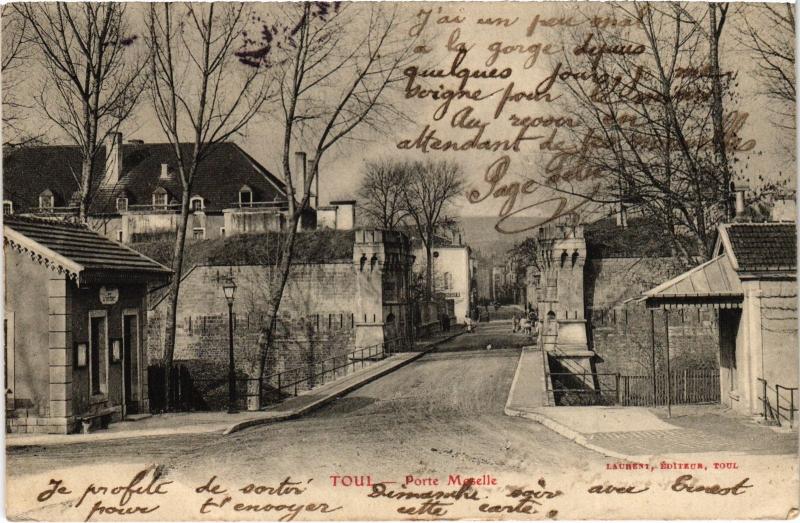 J'ai un peu mal
à la gorge depuis
quelques jours, je me
soigne pour le
Au revoir en
attendant de tes nouvelles
Page
TOUL — Porte Moselle
LAURENT, ÉDITEUR, TOUL
Je profite de sortir Dimanche soir avec Ernest
pour t'envoyer cette carte.